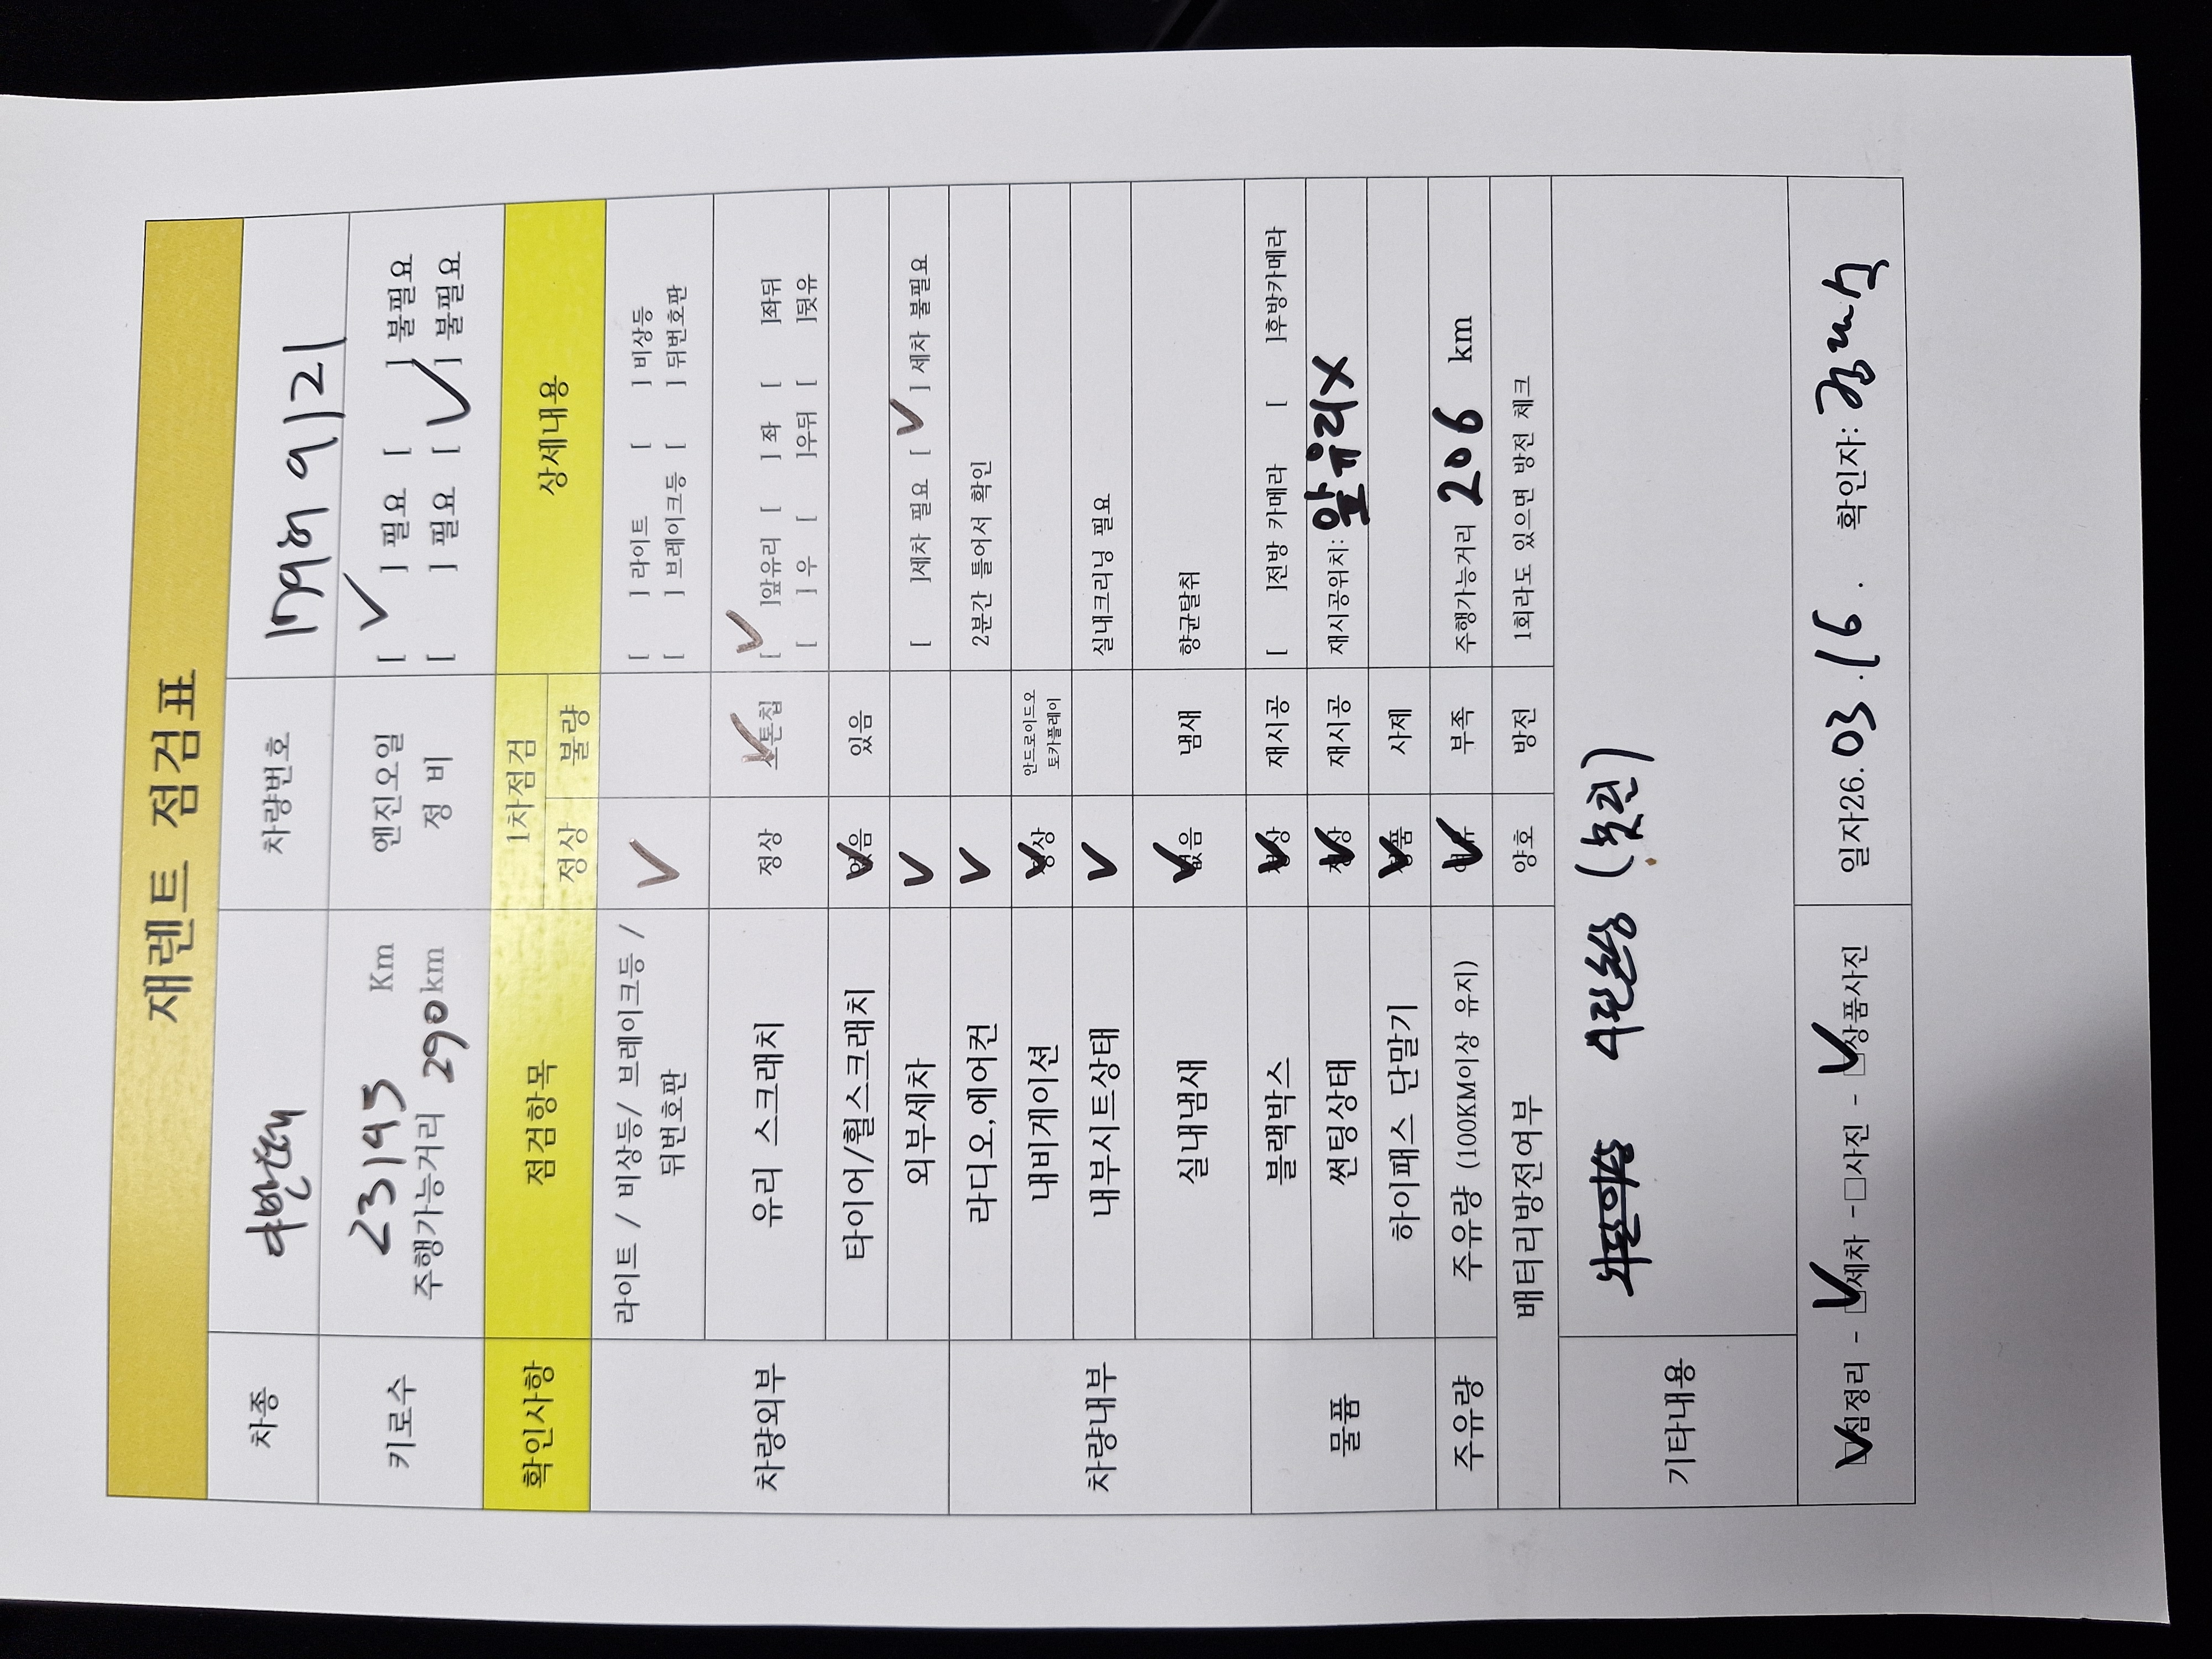 재렌트 점검표
차종 아반떼 차량번호
키로수 23195 Km 엔진오일 [ ✓ ] 필요 [ ] 불필요
주행가능거리 290 km 정 비 [ ] 필요 [ ✓ ] 불필요
확인사항 점검항목 1차점검 상세내용
정상 불량
차량외부 라이트 / 비상등/ 브레이크등 / 뒤번호판 ✓ [ ] 라이트 [ ] 비상등
[ ] 브레이크등 [ ] 뒤번호판
유리 스크래치 정상 스톤칩 ✓ [ ✓ ]앞유리 [ ] 좌 [ ]좌뒤
[ ] 우 [ ]우뒤 [ ]뒷유
타이어/휠스크래치 없음 ✓ 있음
외부세차 ✓ [ ]세차 필요 [ ✓ ] 세차 불필요
차량내부 라디오,에어컨 ✓ 2분간 틀어서 확인
내비게이션 정상 ✓ 안드로이드오
토카플레이
내부시트상태 ✓ 실내크리닝 필요
실내냄새 없음 ✓ 냄새 향균탈취
물품 블랙박스 정상 ✓ 재시공 [ ]전방 카메라 [ ]후방카메라
썬팅상태 정상 ✓ 재시공 재시공위치: 앞유리X
하이패스 단말기 정품 ✓ 사제
주유량 주유량 (100KM이상 유지) ✓ 부족 주행가능거리 206 km
배터리방전여부 양호 방전 1회라도 있으면 방전 체크
기타내용
✓짐정리 - ✓세차 -□사진 - ✓상품사진 일자26.03.16. 확인자: